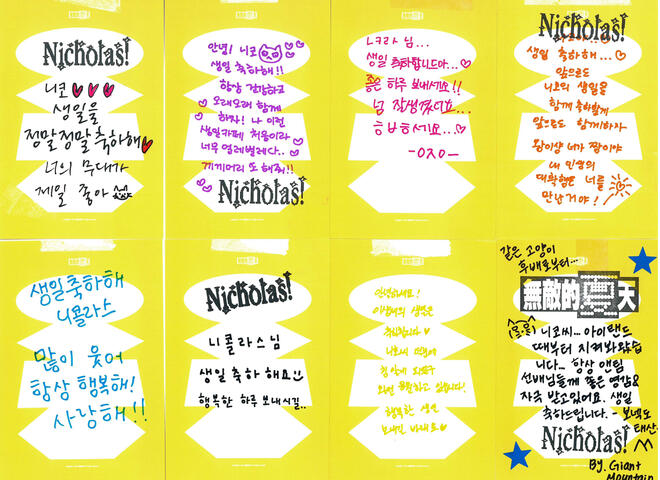 Nicholas!
니코
생일을
정말정말 축하해
너의 무대가
제일 좋아
안녕! 니코
생일 축하해!!
항상 건강하고
오래오래 함께
하자! 나 이런
생일카페 처음이라
너무 떨레벌레다..
끼끼머리 또 해줘!!
Nicholas!
니코라 님...
생일 축하합니다아...
좋은 하루 보내세요!!
넘 잘생겼어요...
행복하세요...
Nicholas!
생일 축하해...
앞으로도
니코의 생일을
함께 축하할게
앞으로도 함께하자
왕이상 너가 짱이야
내 인생의
대확행은 너를
만난거야!
생일축하해
니콜라스
많이 웃어
항상 행복해!
사랑해!!
Nicholas!
니콜라스님
생일 축하 해요
행복한 하루 보내시길..
안녕하세요!
생일을
축하합니다
행복한 생일
보내길 바래요
같은 고양이
후배로부터...
無敵的 天
니코씨... 아이랜드
때부터 지켜봐왔습
니다... 항상 앤팀
선배님들께 좋은 영감&
자극 받고있어요. 생일
축하드립니다. - 보넥도
태산
Nicholas!
By. Giant
Mountain